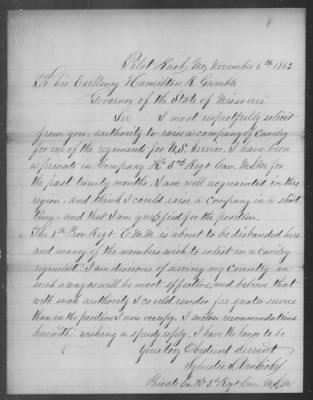 Pilot Knob, Mo, November 6th 1863
To his Exellency Hamilton R Gamble
Governor of the State of Missouri
Sir I most respectfully solicit
from you authority to raise a company of Cavalry
for one of the regiments for U.S. Service. I have been
a private in Company K 3rd Regt Cav. M.S.M for
the past twenty months. I am well acquainted in this
region and think I could raise a company in a short
time and that I am qualified for the position.
The 8th Prov Regt E.M.M. is about to be disbanded here
and many of the members wish to enlist in a Cavalry
regiment. I am desirous of serving my Country in
such a way as will be most effective, and believe that
with such authority I could render far greater service
than in the position I now occupy. I enclose recommendations
herewith. wishing a speedy reply. I have the honor to be
your Obedient Servant
Sylvester
Private Co. K 3rd Regt Cav M.S.M